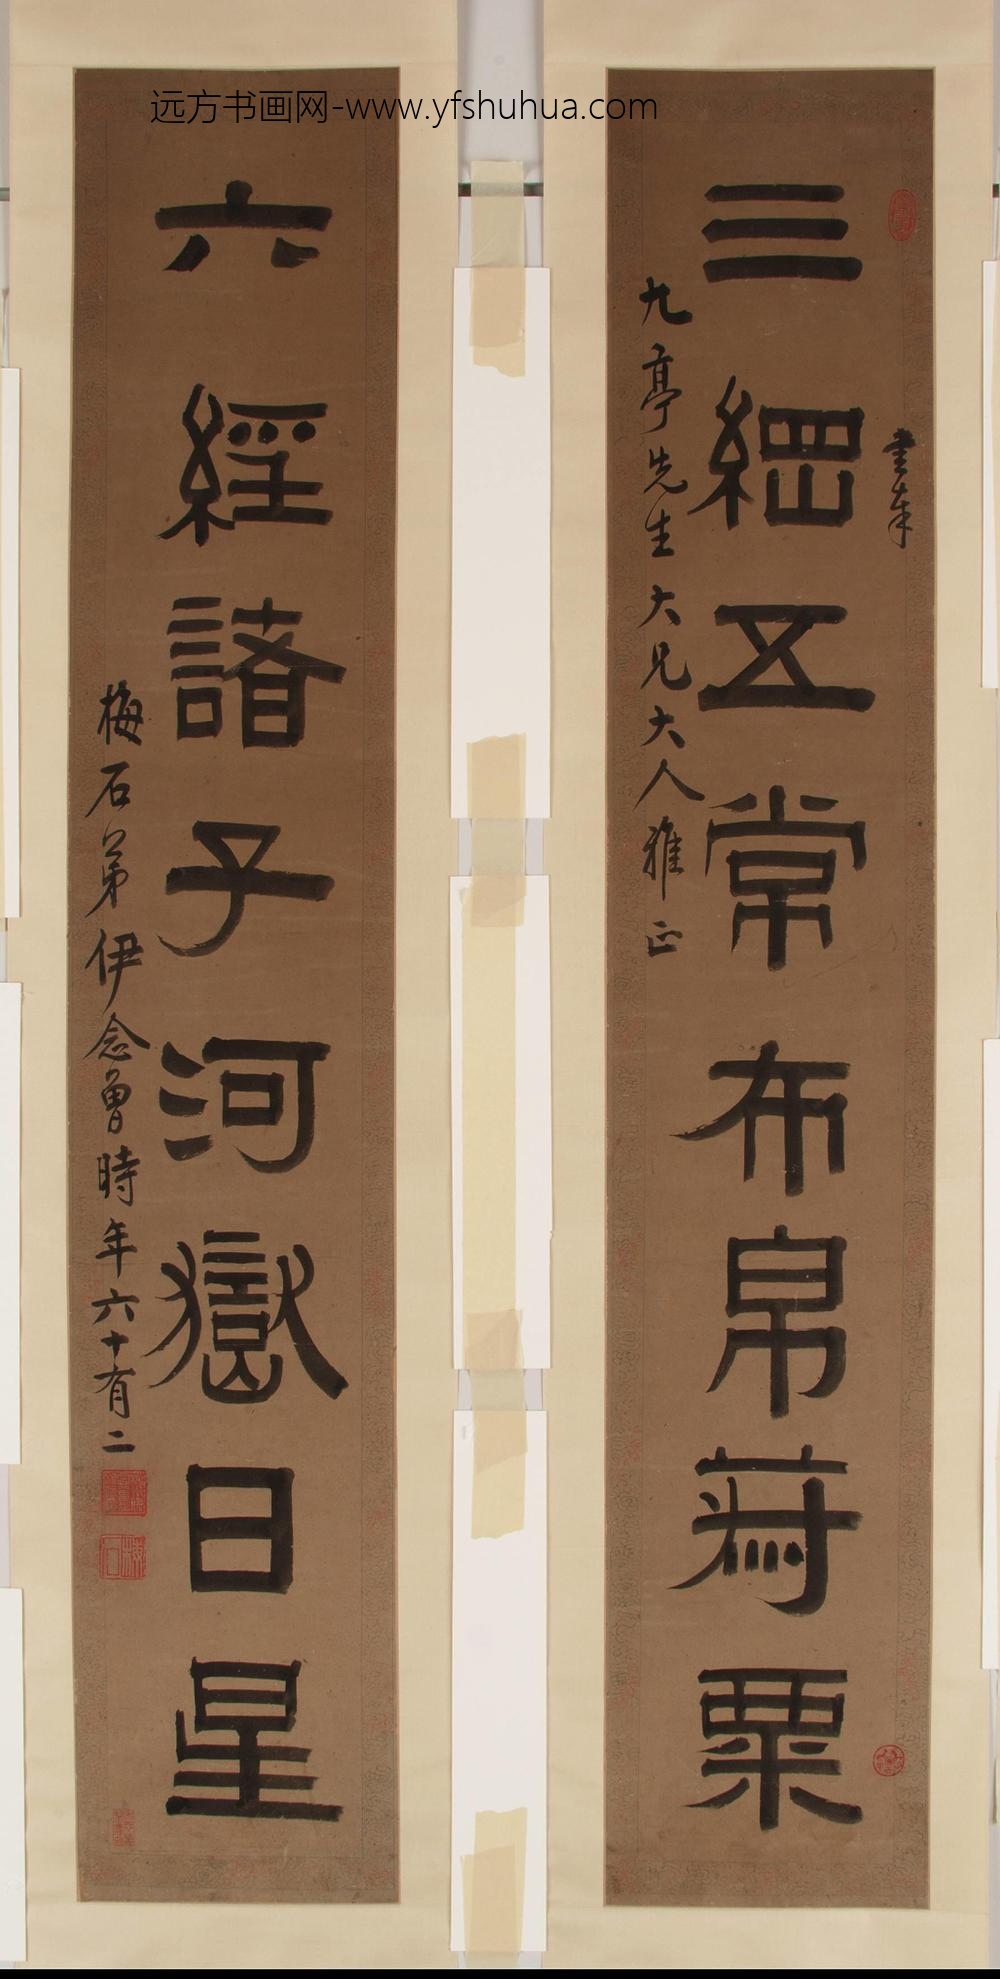 远方书画网-www.yfshuhua.com
書奉
三綱五常布帛菽粟
九亭先生大兄大人雅正
六經諸子河嶽日星
梅石弟伊念曾時年六十有二
梅石